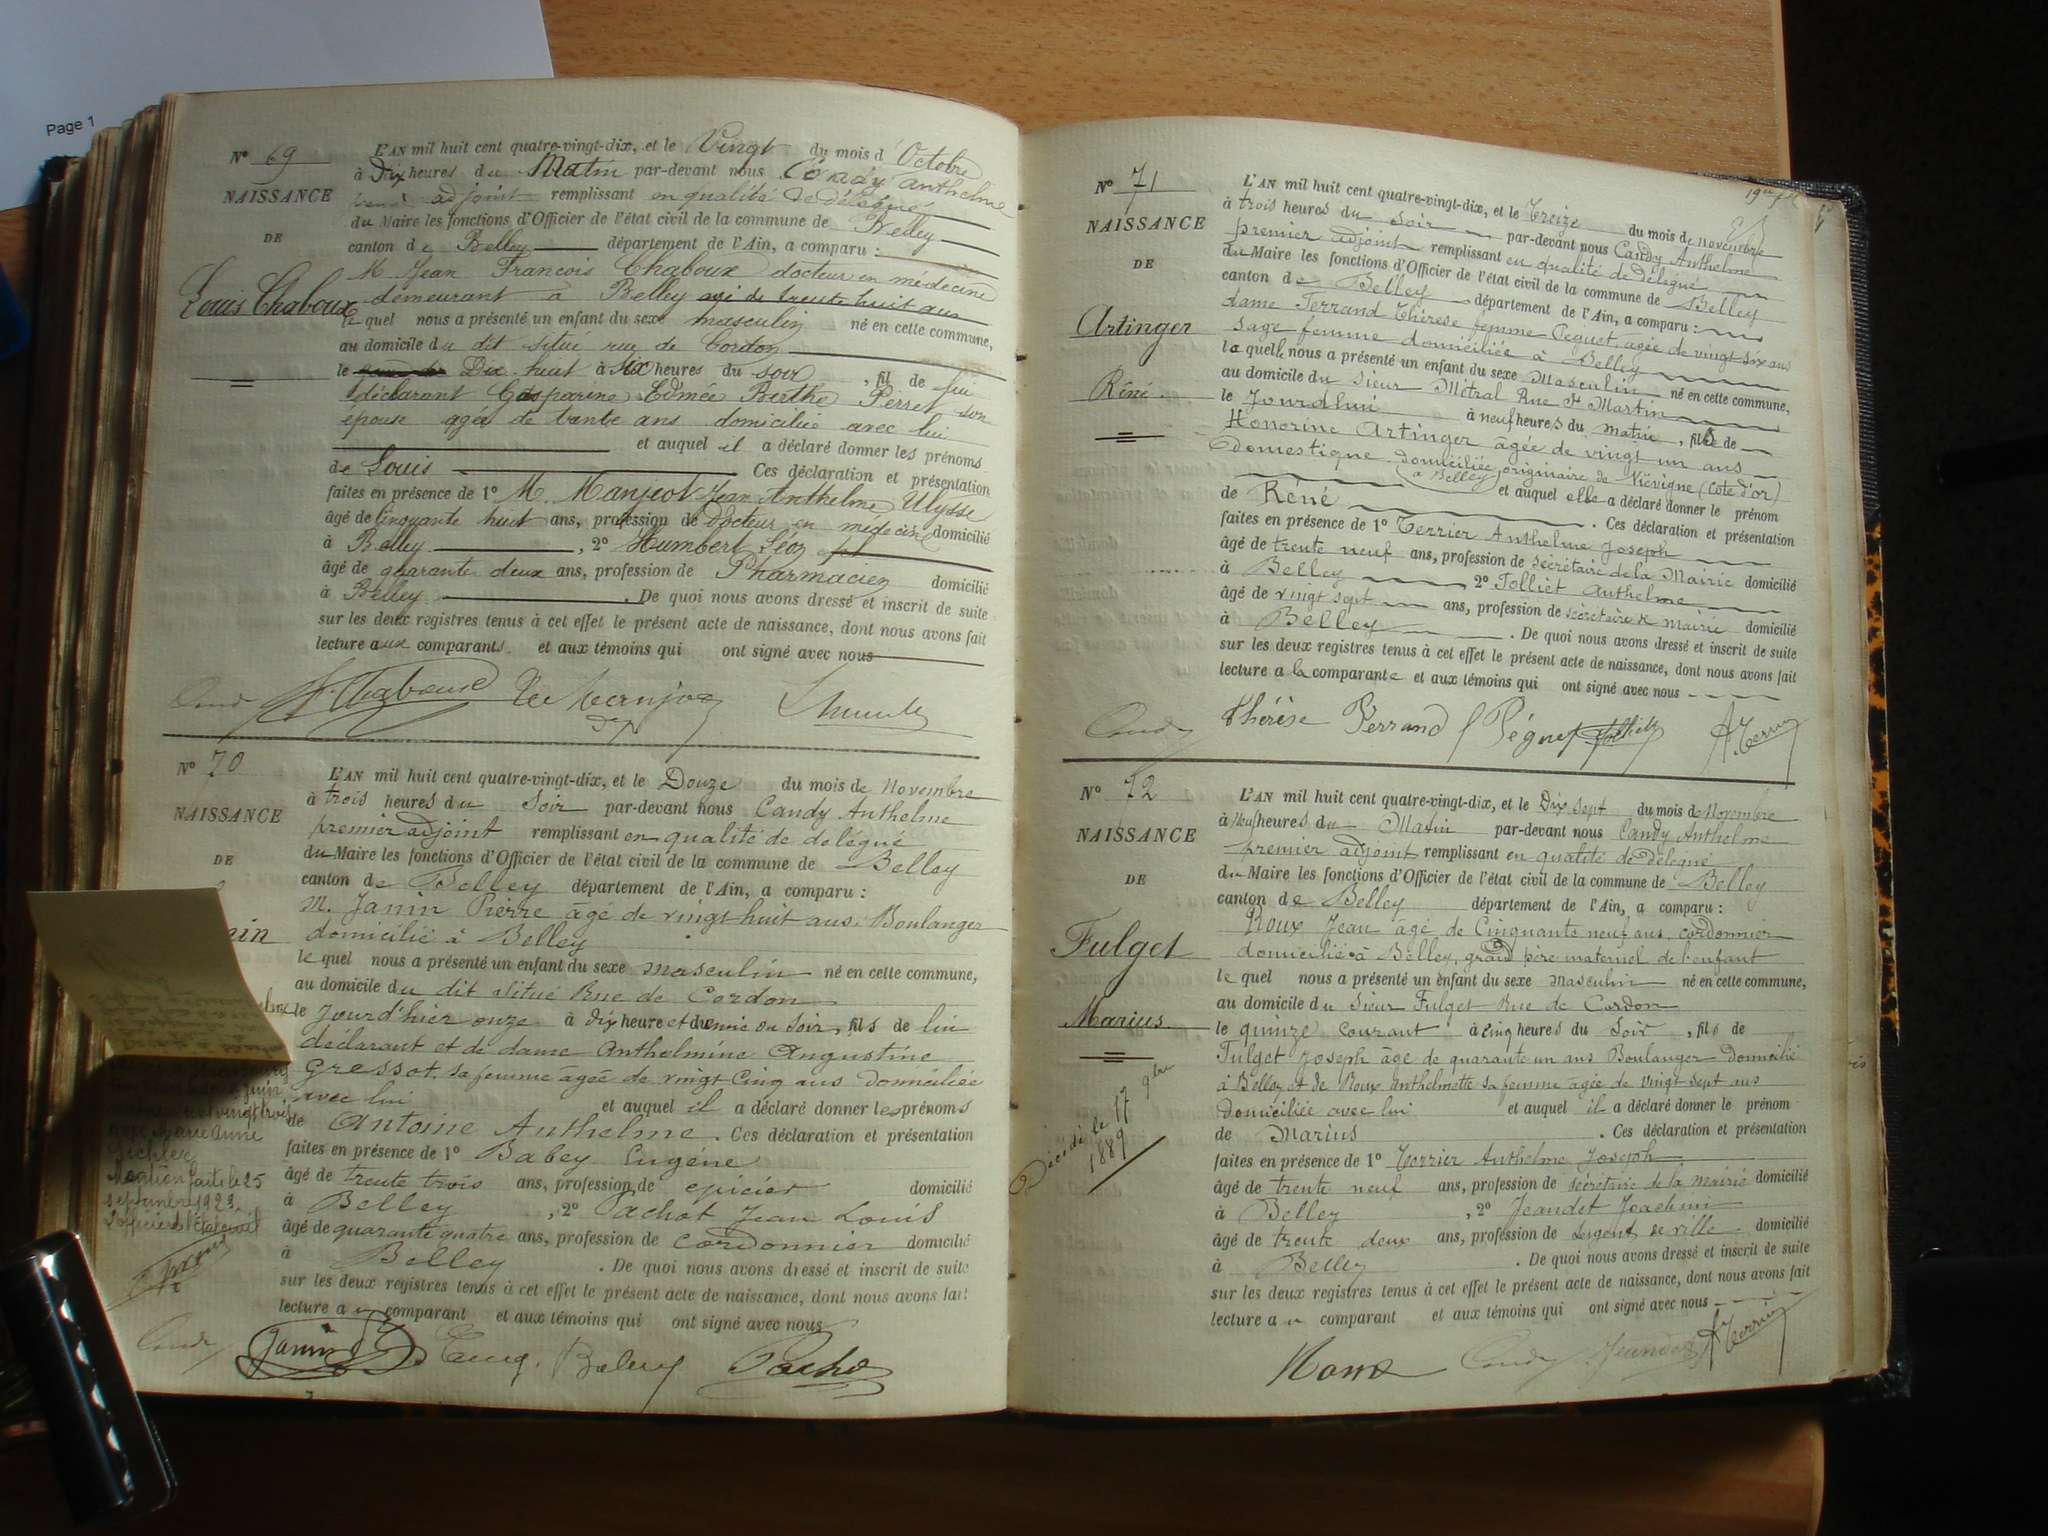 Page 1
Nº 69
NAISSANCE
DE
Louis Chaboux
L'AN mil huit cent quatre-vingt-dix, et le Vingt du mois d'Octobre
à Dix heures du Matin par-devant nous Candy Anthelme
adjoint remplissant en qualité de délégué
du Maire les fonctions d'Officier de l'état civil de la commune de Belley
canton de Belley département de l'Ain, a comparu :
M. Jean François Chaboux docteur en médecine
demeurant à Belley agé de trente huit ans
le quel nous a présenté un enfant du sexe masculin né en cette commune,
au domicile du dit situé rue de Cordon
le Dix huit à six heures du soir, fil de lui
déclarant Gasparine Edmée Berthe Perret son
épouse agée de trente ans domiciliée avec lui
et auquel il a déclaré donner les prénoms
de Louis Ces déclaration et présentation
faites en présence de 1º M. Manjeot Jean Anthelme Ulysse
âgé de Cinquante huit ans, profession de Docteur en médecine domicilié
à Belley, 2º Humbert Léon
âgé de quarante deux ans, profession de Pharmacien domicilié
à Belley. De quoi nous avons dressé et inscrit de suite
sur les deux registres tenus à cet effet le présent acte de naissance, dont nous avons fait
lecture aux comparants. et aux témoins qui ont signé avec nous
Candy Chaboux
Nº 70
NAISSANCE
DE
L'AN mil huit cent quatre-vingt-dix, et le Douze du mois de Novembre
à trois heures du Soir par-devant nous Candy Anthelme
premier adjoint remplissant en qualité de délégué
du Maire les fonctions d'Officier de l'état civil de la commune de Belley
canton de Belley département de l'Ain, a comparu :
M. Janin Pierre âgé de vingt huit ans. Boulanger
domicilié à Belley
le quel nous a présenté un enfant du sexe masculin né en cette commune,
au domicile du dit situé Rue de Cordon
le Jour d'hier onze à dix heure et demie du Soir, fils de lui
déclarant et de dame Anthelmine Augustine
Gressot, sa femme âgée de vingt cinq ans domiciliée
avec lui et auquel il a déclaré donner les prénoms
de Antoine Anthelme. Ces déclaration et présentation
faites en présence de 1º Babey Eugène
âgé de trente trois ans, profession de épicier domicilié
à Belley, 2º Pachot Jean Louis
âgé de quarante quatre ans, profession de cordonnier domicilié
à Belley. De quoi nous avons dressé et inscrit de suite
sur les deux registres tenus à cet effet le présent acte de naissance, dont nous avons fait
lecture au comparant et aux témoins qui ont signé avec nous
juin
vingt trois
Marie Anne
Mention faite le 25
septembre 1923.
L'officier de l'Etat civil
Candy Janin Babey Pachot
Nº 71
NAISSANCE
DE
Artinger
Réné
L'AN mil huit cent quatre-vingt-dix, et le Treize du mois de novembre
à trois heures du Soir par-devant nous Candy Anthelme
premier adjoint remplissant en qualité de délégué
du Maire les fonctions d'Officier de l'état civil de la commune de Belley
canton de Belley département de l'Ain, a comparu :
dame Ferrand Thérèse femme Peguet, agée de vingt six ans
sage femme domiciliée à Belley
la quelle nous a présenté un enfant du sexe Masculin né en cette commune,
au domicile du sieur Métral Rue St Martin
le Jourdhui à neuf heures du matin, fils de
Honorine Artinger âgée de vingt un ans
Domestique domiciliée à Belley originaire de Viévigne (Côte d'or)
et auquel elle a déclaré donner le prénom
de Réné. Ces déclaration et présentation
faites en présence de 1º Terrier Anthelme Joseph
âgé de trente neuf ans, profession de secrétaire de la Mairie domicilié
à Belley 2º Tolliet Anthelme
âgé de vingt sept ans, profession de secrétaire de mairie domicilié
à Belley. De quoi nous avons dressé et inscrit de suite
sur les deux registres tenus à cet effet le présent acte de naissance, dont nous avons fait
lecture a la comparante et aux témoins qui ont signé avec nous
Candy Thérèse Ferrand f Péguet Tolliet A. Terrier
Nº 72
NAISSANCE
DE
Fulget
Marius
Décédé le 17 9bre
1889
L'AN mil huit cent quatre-vingt-dix, et le Dix sept du mois de Novembre
à Neuf heures du Matin par-devant nous Candy Anthelme
premier adjoint remplissant en qualité de délégué
du Maire les fonctions d'Officier de l'état civil de la commune de Belley
canton de Belley département de l'Ain, a comparu :
Roux Jean âgé de Cinquante neuf ans, cordonnier
domicilié à Belley, grand père maternel de l'enfant
le quel nous a présenté un enfant du sexe masculin né en cette commune,
au domicile du Sieur Fulget Rue de Cordon
le quinze courant à cinq heures du Soir, fils de
Fulget Joseph âgé de quarante un ans Boulanger Domicilié
à Belley et de Roux Anthelmette sa femme agée de vingt sept ans
Domiciliée avec lui et auquel il a déclaré donner le prénom
de Marius. Ces déclaration et présentation
faites en présence de 1º Terrier Anthelme Joseph
âgé de trente neuf ans, profession de secrétaire de la mairie domicilié
à Belley, 2º Jeandet Joachim
âgé de trente deux ans, profession de sergent de ville domicilié
à Belley. De quoi nous avons dressé et inscrit de suite
sur les deux registres tenus à cet effet le présent acte de naissance, dont nous avons fait
lecture au comparant et aux témoins qui ont signé avec nous
Roux Candy Jeandet A. Terrier